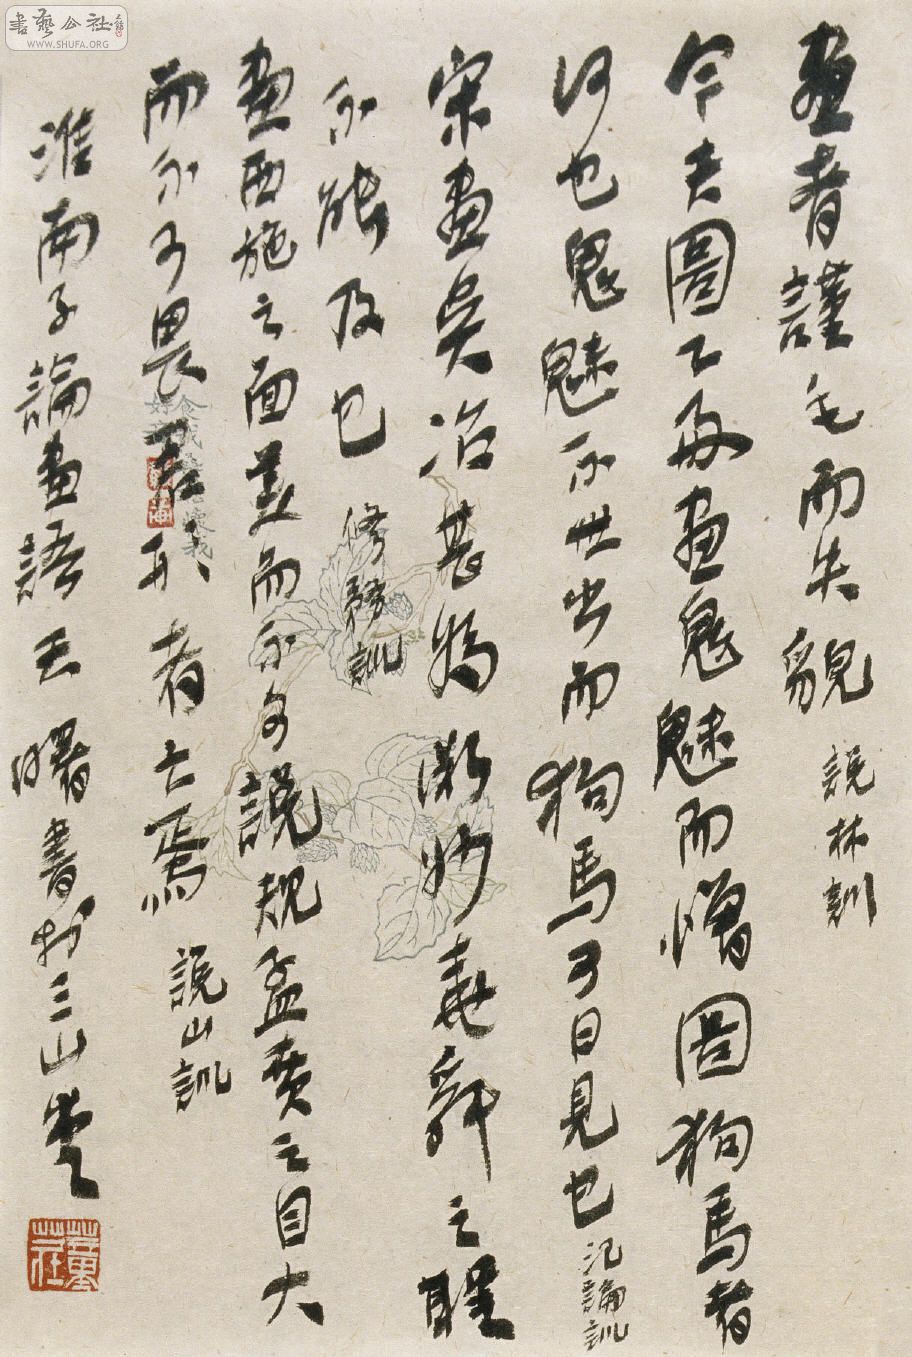 書藝公社
WWW.SHUFA.ORG
畫者謹毛而失貌 說林訓
今夫圖工好畫鬼魅而憎圖狗馬者
何也鬼魅不世出而狗馬可日見也 氾論訓
宋畫吳冶甚為微妙堯舜之聖
不能及也 脩務訓
畫西施之面美而不可說規孟賁之目大
而不可畏君形者亡焉 說山訓
淮南子論畫語 曙書於三山